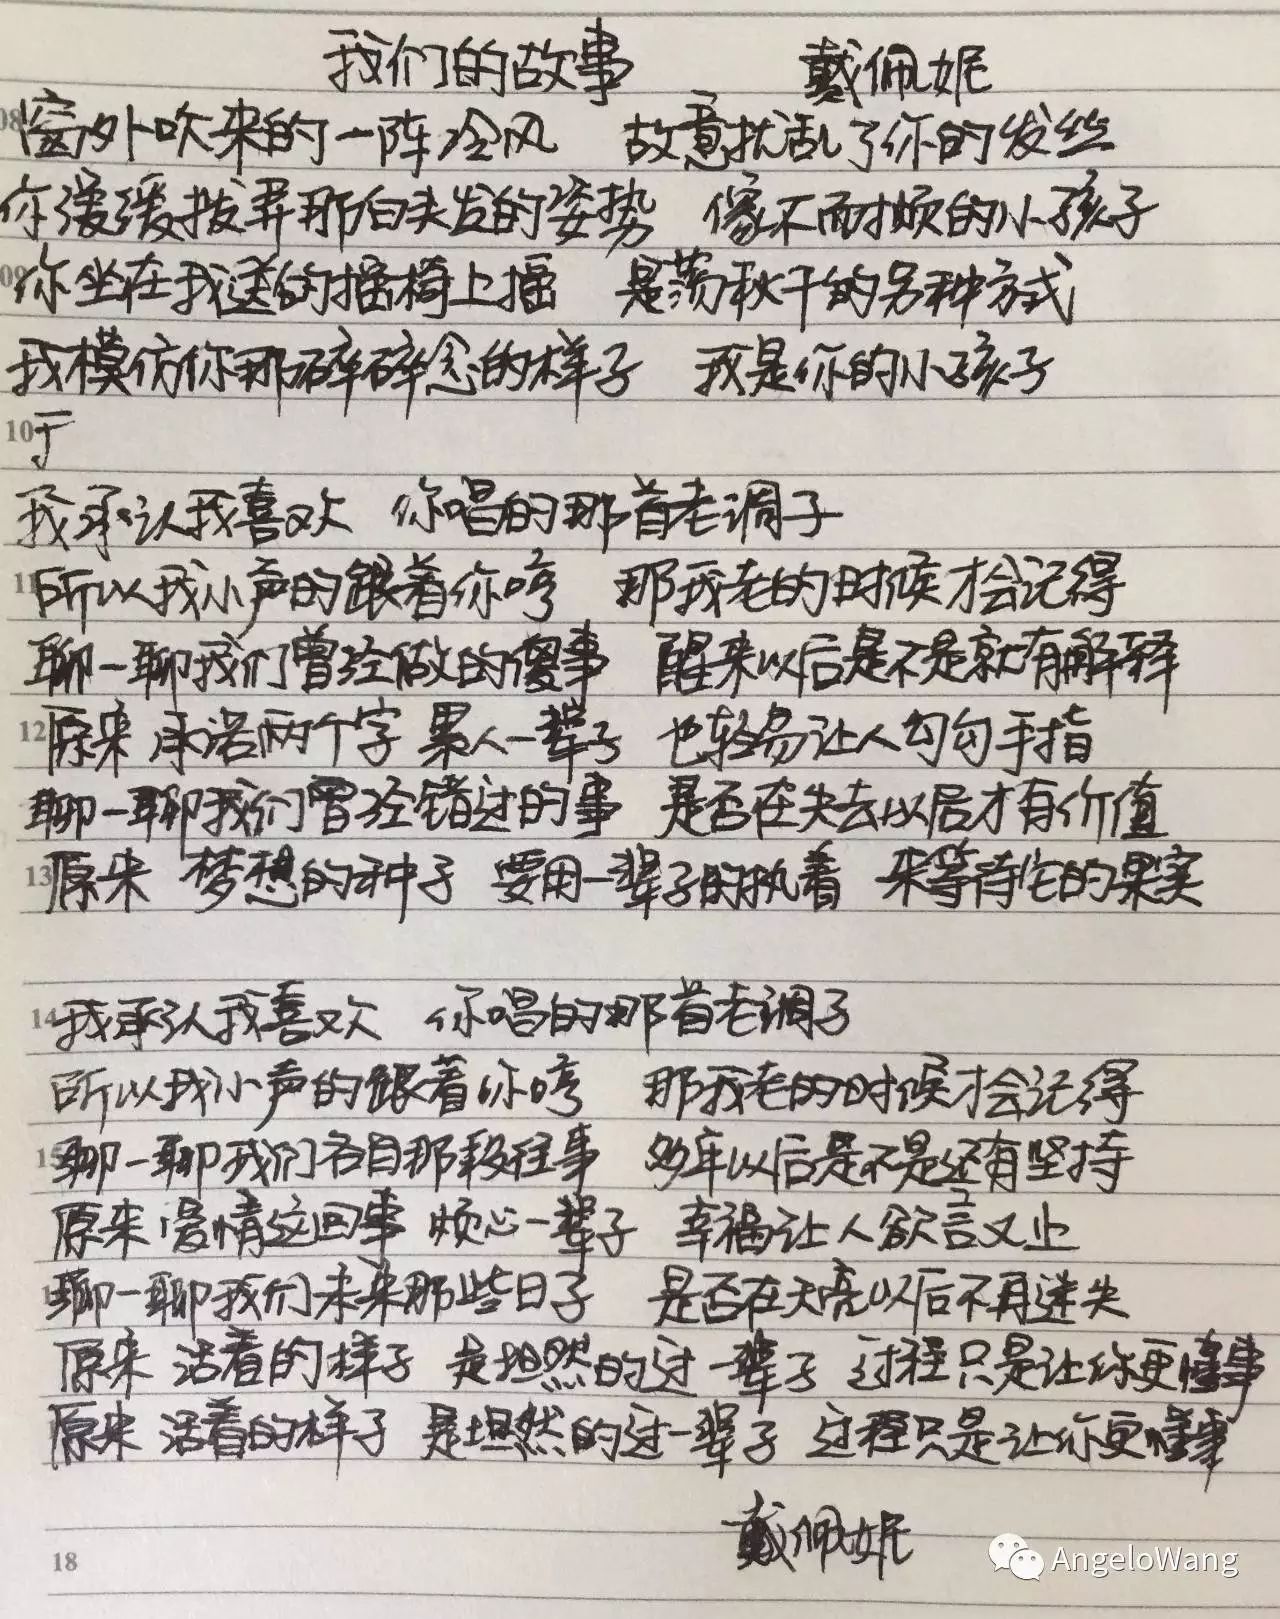 我们的故事 戴佩妮
08 窗外吹来的一阵冷风 故意扰乱了你的发丝
你缓缓拨弄那白头发的姿势 像不耐烦的小孩子
09 你坐在我送的摇椅上摇 是荡秋千的另种方式
我模仿你那碎碎念的样子 我是你的小孩子
10 于
我承认我喜欢 你唱的那首老调子
11 所以我小声的跟着你哼 那我老的时候才会记得
聊一聊我们曾经做的傻事 醒来以后是不是就有解释
12 原来 承诺两个字 累人一辈子 也轻易让人勾勾手指
聊一聊我们曾经错过的事 是否在失去以后才有价值
13 原来 梦想的种子 要用一辈子的执着 来等待它的果实
14 我承认我喜欢 你唱的那首老调子
所以我小声的跟着你哼 那我老的时候才会记得
15 聊一聊我们各自那段往事 多年以后是不是还有坚持
原来 爱情这回事 烦心一辈子 幸福让人欲言又止
聊一聊我们未来那些日子 是否在天亮以后不再迷失
原来 活着的样子 是坦然的过一辈子 过程只是让你更懂事
原来 活着的样子 是坦然的过一辈子 过程只是让你更懂事
戴佩妮
18
AngeloWang